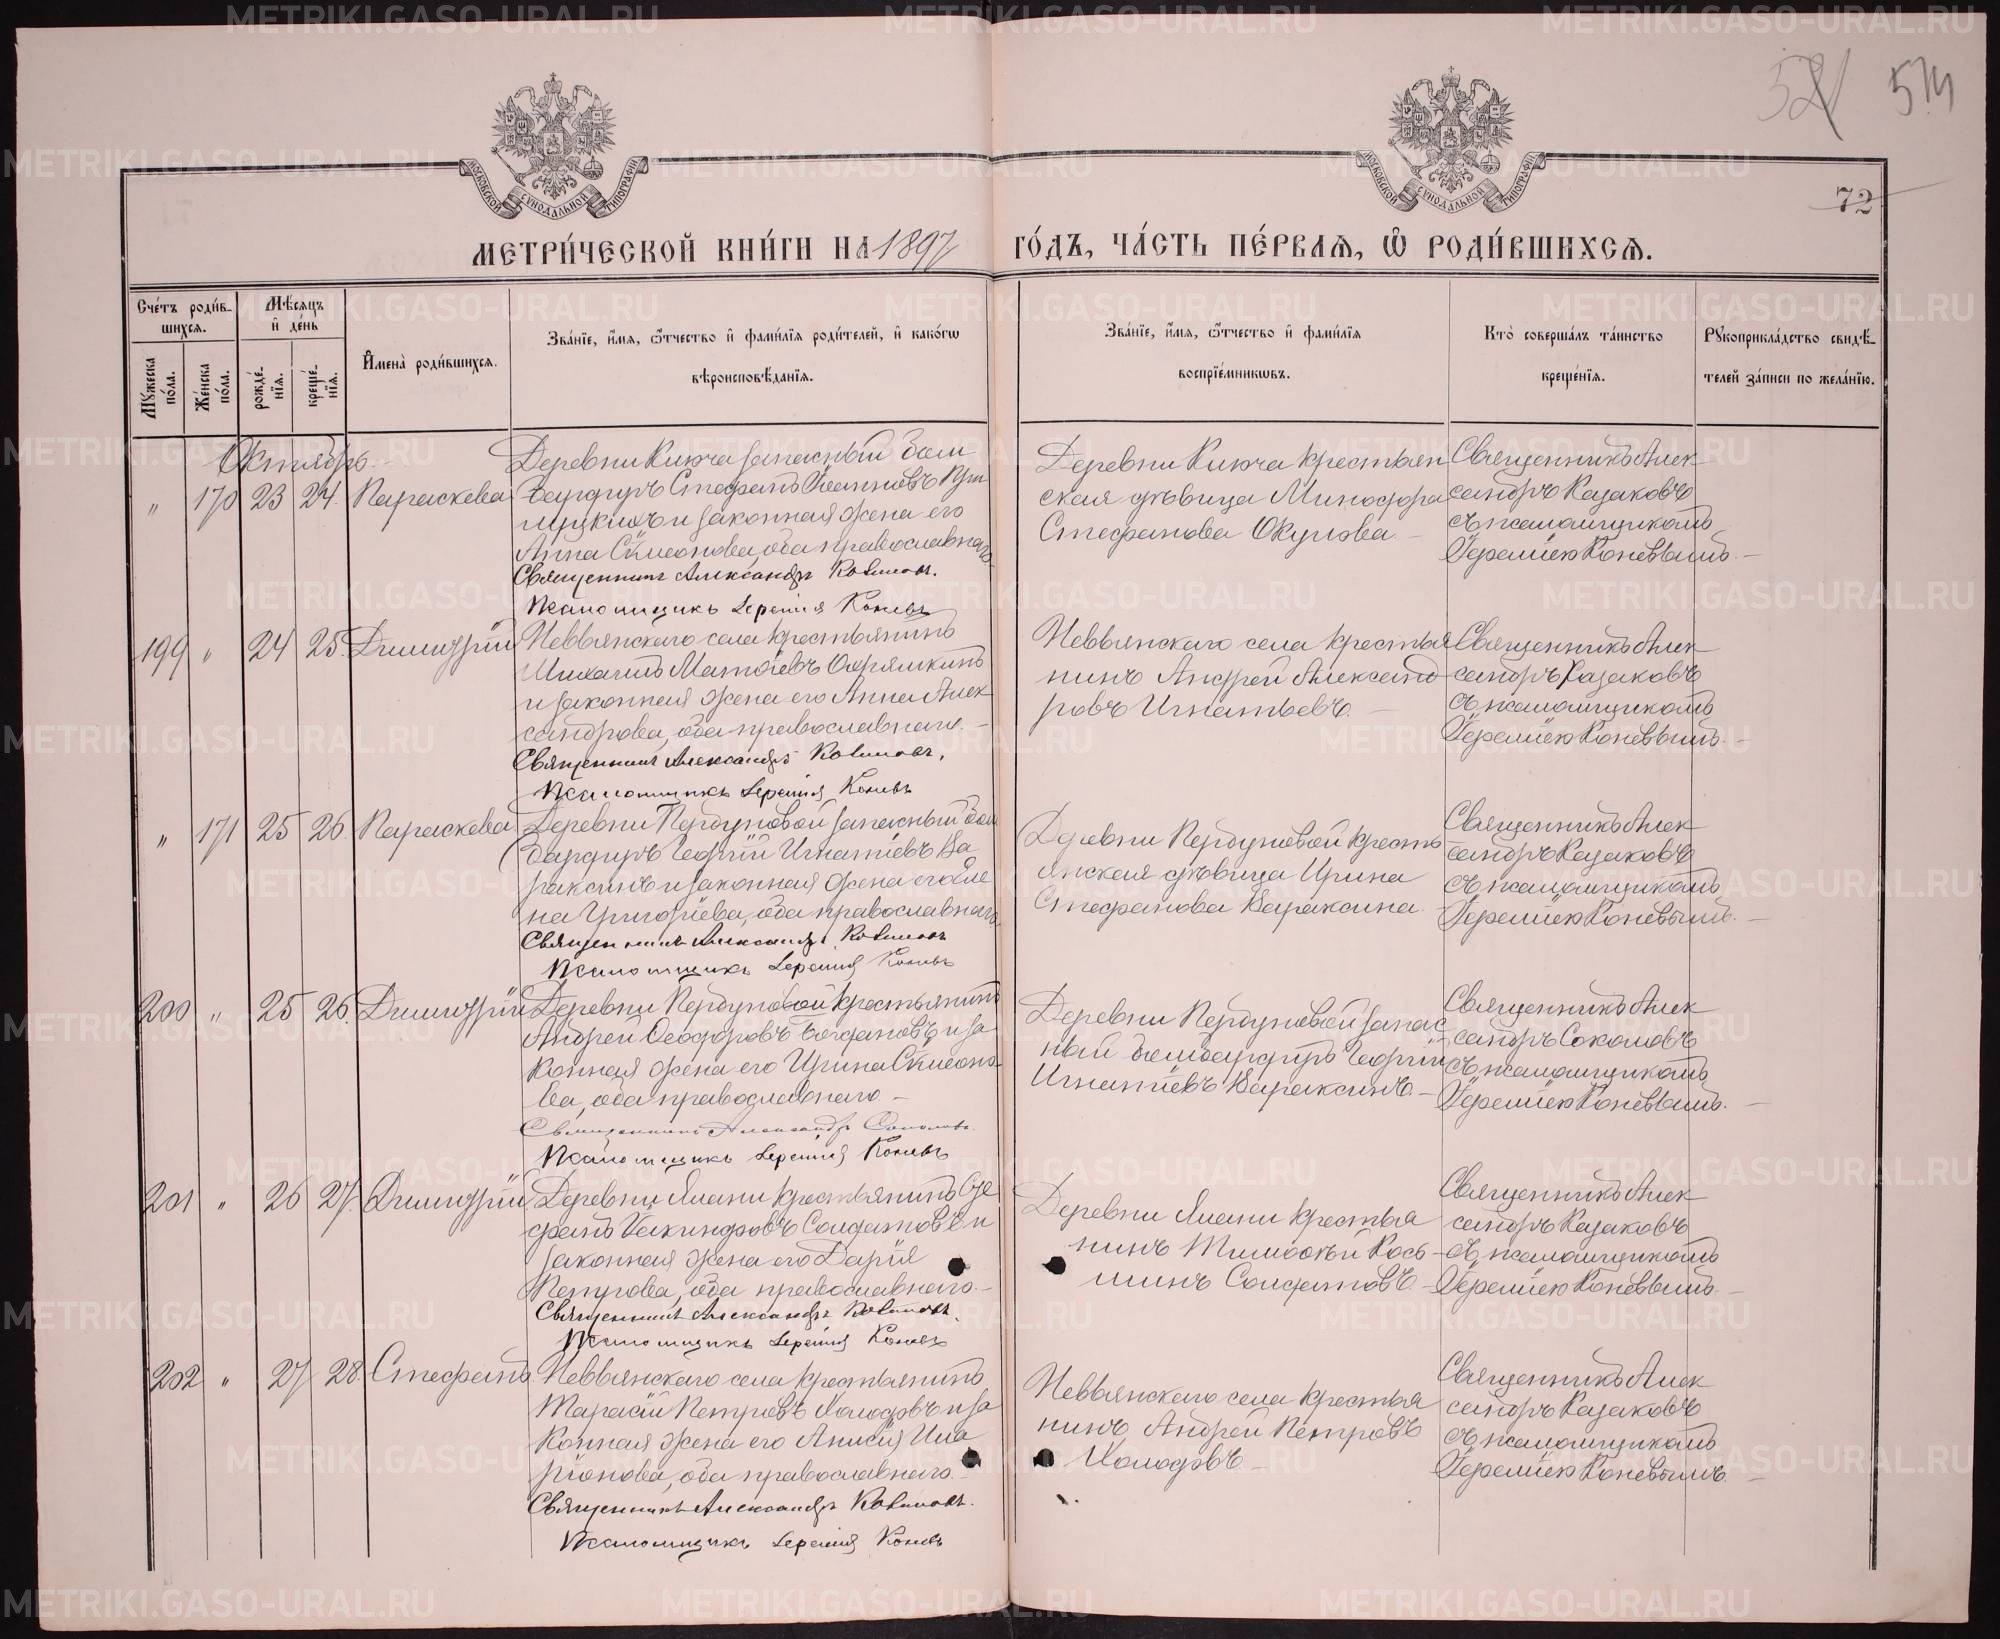 52 514
72
МОСКОВСКОЙ СѴНОДАЛЬНОЙ ТИПОГРАФІИ
МОСКОВСКОЙ СѴНОДАЛЬНОЙ ТИПОГРАФІИ
МЕТРИ́ЧЕСКОЙ КНИ́ГИ НА 1897 ГО́ДЪ, ЧА́СТЬ ПЕ́РВАѦ, Ѡ҆ РОДИ́ВШИХСѦ.
Сче́тъ роди́в-
шихсѧ.
Мꙋ́жеска по́ла.
Же́нска по́ла.
Мѣ́сѧцъ
и҆ де́нь
рожде́-
нїѧ.
креще́-
нїѧ.
И҆мена̀ роди́вшихсѧ.
Зва́нїе, и҆́мѧ, ѻ҆́тчество и҆ фами́лїѧ роди́телей, и҆ како́гѡ
вѣроисповѣ́данїѧ.
Зва́нїе, и҆́мѧ, ѻ҆́тчество и҆ фами́лїѧ
воспрїе́мникѡвъ.
Кто̀ соверша́лъ та́инство
креще́нїѧ.
Рꙋкоприкла́дство свидѣ́-
телей за́писи по жела́нїю.
Октябрь.
" 170 23 24. Параскева
Деревни Ключа запасный бом
бардиръ Стефанъ Іоанновъ
и законная жена его
Анна Сѵмеонова, оба православнаго
Священникъ Александръ Казаковъ.
Псаломщикъ Іеремія Коневъ
Деревни Ключа крестьян
ская дѣвица Минодора
Стефанова Окулова.
Священникъ Алек
сандръ Казаковъ
съ псаломщикомъ
Іереміею Коневымъ.
199 " 24 25. Димитрій
Невьянскаго села крестьянинъ
Михаилъ Матѳіевъ Охряпкинъ
и законная жена его Анна Алек
сандрова, оба православнаго.
Священникъ Александръ Казаковъ.
Псаломщикъ Іеремія Коневъ
Невьянскаго села крестья
нинъ Андрей Александ
ровъ Игнатьевъ.
Священникъ Алек
сандръ Казаковъ
съ псаломщикомъ
Іереміею Коневымъ.
" 171 25 26. Параскева
Деревни Пердуновой запасный бом
бардиръ Георгій Игнатіевъ Ва
раксинъ и законная жена его Еле
на Григоріева, оба православнаго
Священникъ Александръ Казаковъ
Псаломщикъ Іеремія Коневъ
Деревни Пердуновой кресть
янская дѣвица Ирина
Стефанова Вараксина.
Священникъ Алек
сандръ Казаковъ
съ псаломщикомъ
Іереміею Коневымъ.
200 " 25 26. Димитрій
Деревни Пердуновой крестьянинъ
Андрей Ѳеодоровъ Богдановъ и за
конная жена его Ирина Сѵмеоно-
ва, оба православнаго
Священникъ Александръ Соколовъ.
Псаломщикъ Іеремія Коневъ
Деревни Пердуновой запас
ный бомбардиръ Георгій
Игнатіевъ Вараксинъ.
Священникъ Алек
сандръ Соколовъ
съ псаломщикомъ
Іереміею Коневымъ.
201 " 26 27. Димитрій
Деревни Ялани крестьянинъ Сте
фанъ Іакинѳовъ Солдатовъ и
законная жена его Дарія
Петрова, оба православнаго.
Священникъ Александръ Казаковъ.
Псаломщикъ Іеремія Коневъ
Деревни Ялани крестья
нинъ Тимоѳей Кось
минъ Солдатовъ.
Священникъ Алек
сандръ Казаковъ
съ псаломщикомъ
Іереміею Коневымъ.
202 " 27 28. Стефанъ.
Невьянскаго села крестьянинъ
Тарасій Петровъ Холодовъ и за
конная жена его Анисія Ила
ріонова, оба православнаго.
Священникъ Александръ Казаковъ.
Псаломщикъ Іеремія Коневъ
Невьянскаго села крестья
нинъ Андрей Петровъ
Холодовъ.
Священникъ Алек
сандръ Казаковъ
съ псаломщикомъ
Іереміею Коневымъ.
METRIKI.GASO-URAL.RU